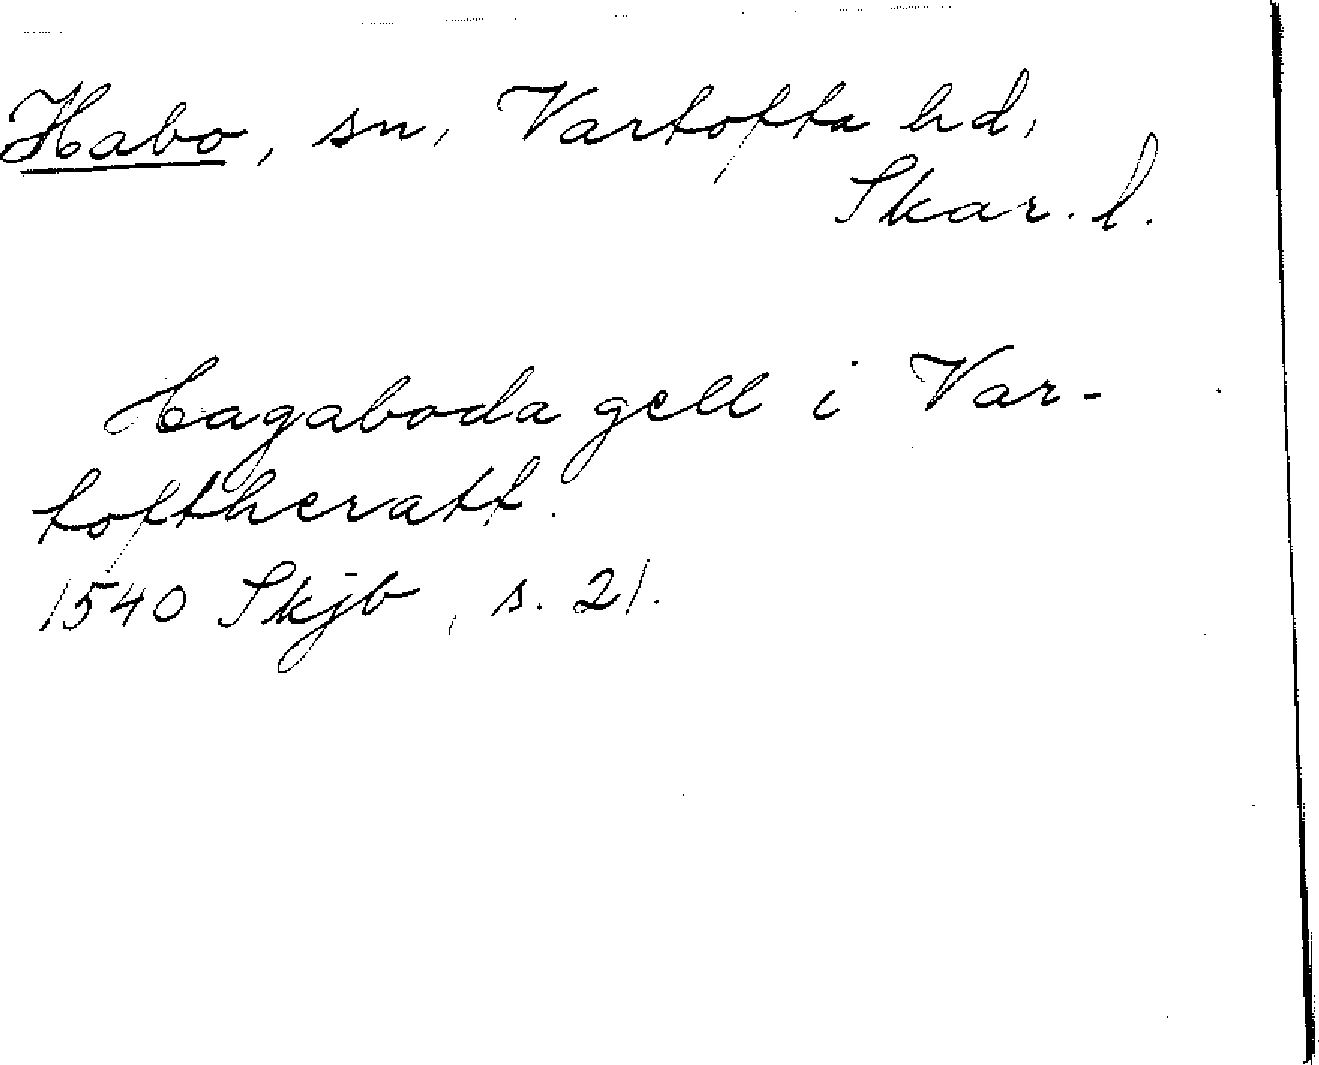 Habo, sn, Vartofta hd,
Skar. l.
Hagaboda gell i Var-
toftheratt.
1540 Skjb, s. 21.